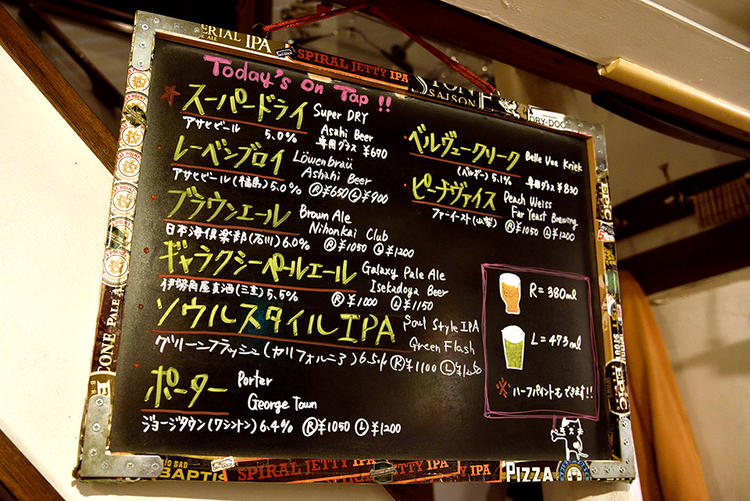 ERIAL IPA
SPIRAL JETTY IPA
STONE
SAISON
DRY-DOC
Today's On Tap !!
スーパードライ Super DRY
アサヒビール 5.0% Asahi Beer
専用グラス ¥670
レーベンブロイ Löwenbräu
Ashahi Beer
アサヒビール(福島) 5.0% Ⓡ¥650 Ⓛ¥900
ブラウンエール Brown Ale
Nihonkai Club
日本海倶楽部(石川) 6.0% Ⓡ¥1050 Ⓛ¥1200
ギャラクシーペールエール Galaxy Pale Ale
Isekadoya Beer
伊勢角屋麦酒(三重) 5.5% Ⓡ¥1000 Ⓛ¥1150
ソウルスタイルIPA Soul Style IPA
Green Flash
グリーンフラッシュ(カリフォルニア) 6.5% Ⓡ¥1100 Ⓛ¥1250
ポーター Porter
George Town
ジョージタウン(ワシントン) 6.4% Ⓡ¥1050 Ⓛ¥1200
ベルヴュークリーク Belle Vue Kriek
(ベルギー) 5.1% 専用グラス ¥830
ピーチヴァイス Peach Weiss
Far Yeast Brewing
ファーイースト(山梨) Ⓡ¥1050 Ⓛ¥1200
R=380ml
L=473ml
※ ハーフパイントもできます!!
EPIC
CONE PALE A
EPIC
BIG BAD
BAPTIS
SPIRAL JETTY IPA
JETTY IPA
PIZZA